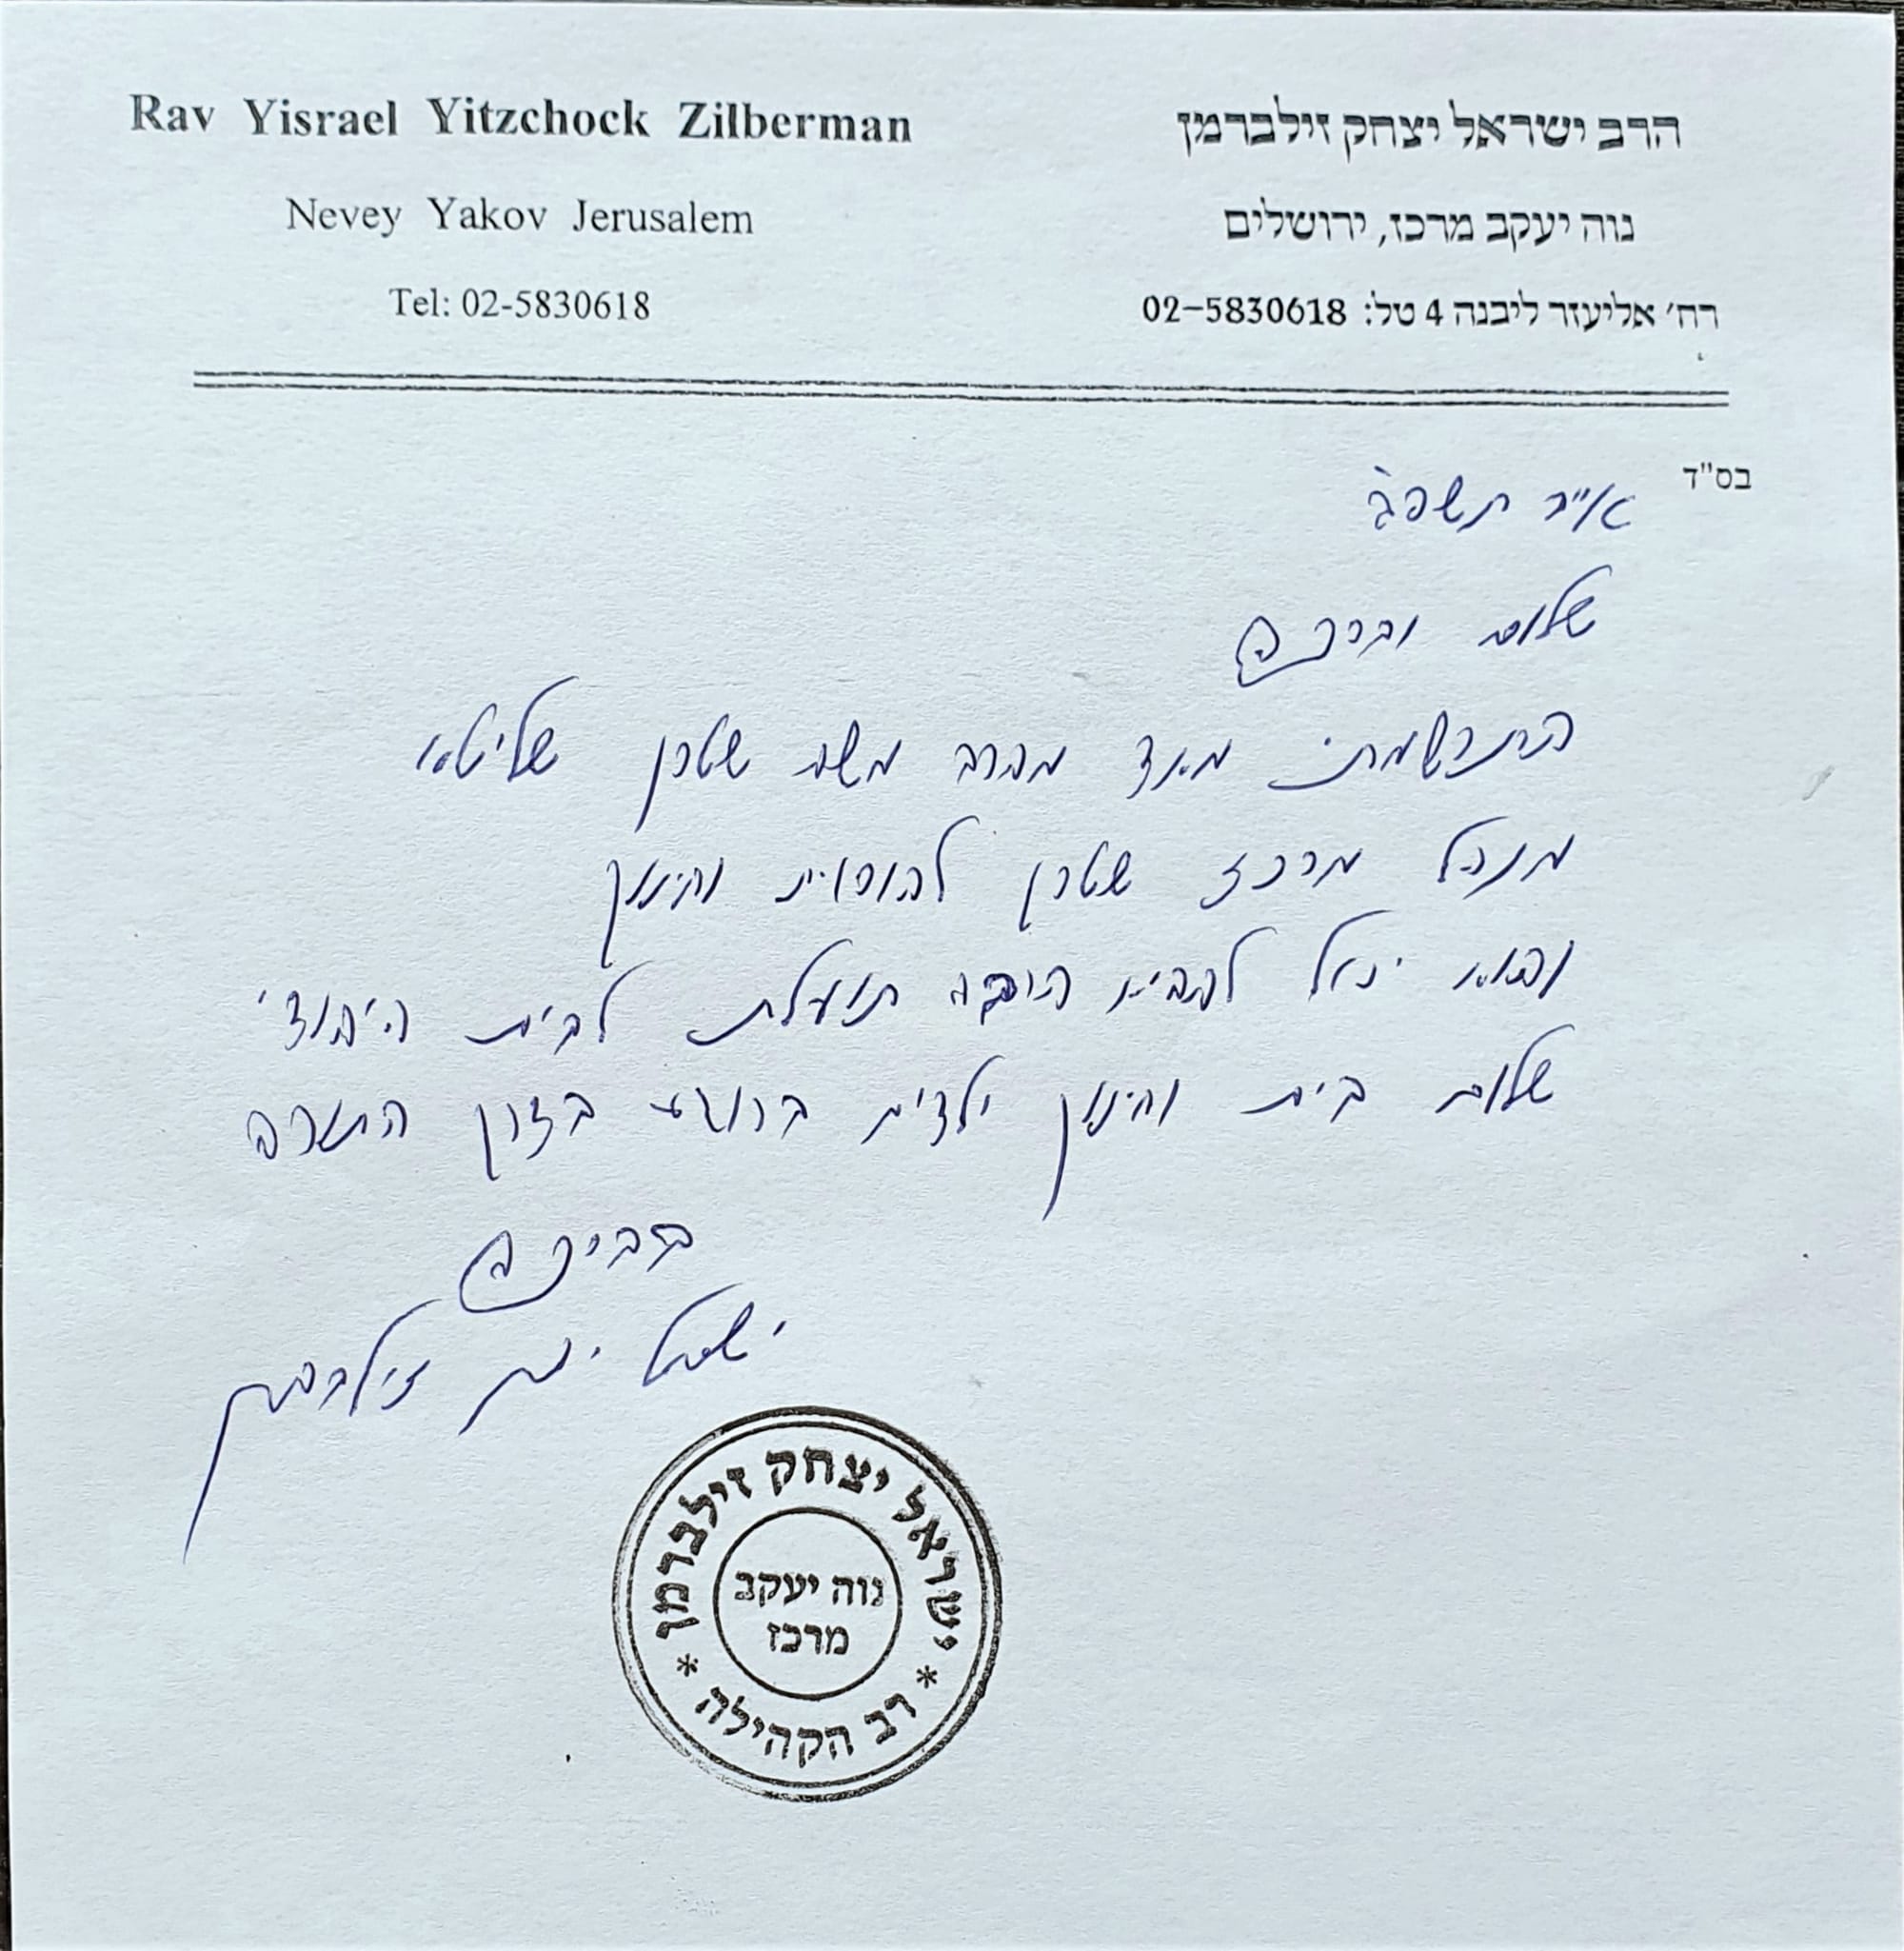 Rav Yisrael Yitzchock Zilberman
Nevey Yakov Jerusalem
Tel: 02-5830618
הרב ישראל יצחק זילברמן
נוה יעקב מרכז, ירושלים
רח' אליעזר ליבנה 4 טל: 02-5830618
בס"ד
אייר תשפ"ג
שלום וברכה
התרשמתי מאד מהרב משה שטרן שליטא
מנהל מרכז שטרן להורות וחינוך
והוא יכול להביא הרבה תועלת לבית היהודי
שלום בית וחינוך ילדים ברוגע בדרך התורה
בברכה
ישראל יצחק זילברמן
ישראל יצחק זילברמן
* רב הקהילה *
נוה יעקב
מרכז